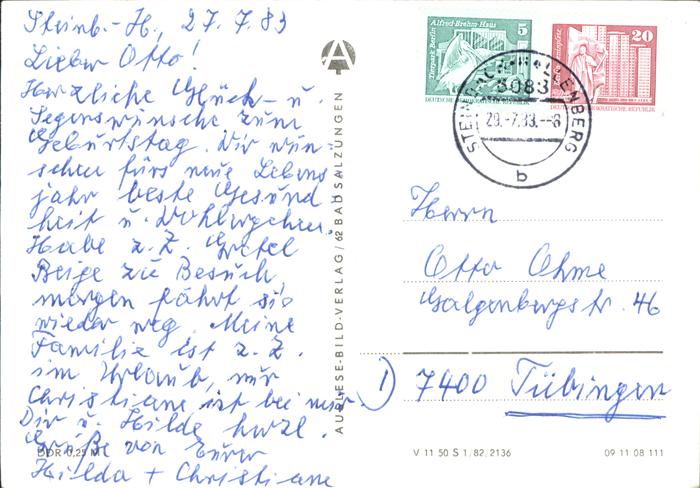 Steinb.-H., 27.7.83
Lieber Otto!
Herzliche Glück- u.
Segenswünsche zum
Geburtstag. Wir wün-
schen fürs neue Lebens
jahr beste Gesund
heit u. Wohlergehen.
Habe z. Z. Gretel
Beige zu Besuch
morgen fährt sie
wieder weg. Meine
Familie ist z. Z.
im Urlaub, nur
Christiane ist bei mir
Dir u. Hilde herzl.
Grüße von Eurer
Hilda + Christiane
DDR 0,25 M
AUSLESE-BILD-VERLAG/62 BAD SALZUNGEN
Alfred-Brehm-Haus
5
Tierpark Berlin
20
3083
29.-7.83.--8
b
Herrn
Otto Ohme
Galgenbergstr. 46
1) 7400 Tübingen
V 11 50 S 1/82, 2136
09 11 08 111